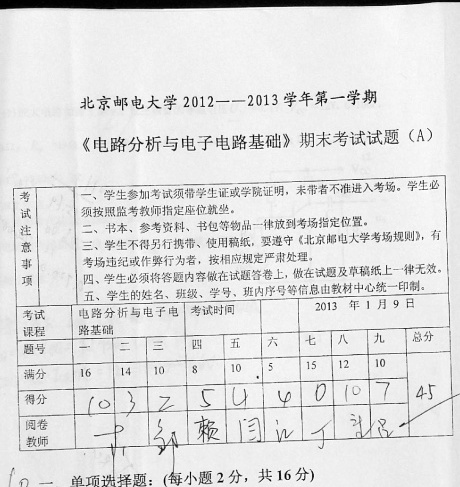 北京邮电大学 2012——2013 学年第一学期
《电路分析与电子电路基础》期末考试试题（A）
考试注意事项
一、学生参加考试须带学生证或学院证明，未带者不准进入考场。学生必
须按照监考教师指定座位就坐。
二、书本、参考资料、书包等物品一律放到考场指定位置。
三、学生不得另行携带、使用稿纸，要遵守《北京邮电大学考场规则》，有
考场违纪或作弊行为者，按相应规定严肃处理。
四、学生必须将答题内容做在试题答卷上，做在试题及草稿纸上一律无效。
五、学生的姓名、班级、学号、班内序号等信息由教材中心统一印制。
考试课程 电路分析与电子电路基础 考试时间 2013 年 1 月 9 日
题号 一 二 三 四 五 六 七 八 九 总分
满分 16 14 10 8 10 5 15 12 10
得分 10 3 2 5 4 4 0 10 7 45
阅卷教师 郭 赖 闫 江 丁
10 一、单项选择题：(每小题 2 分，共 16 分)